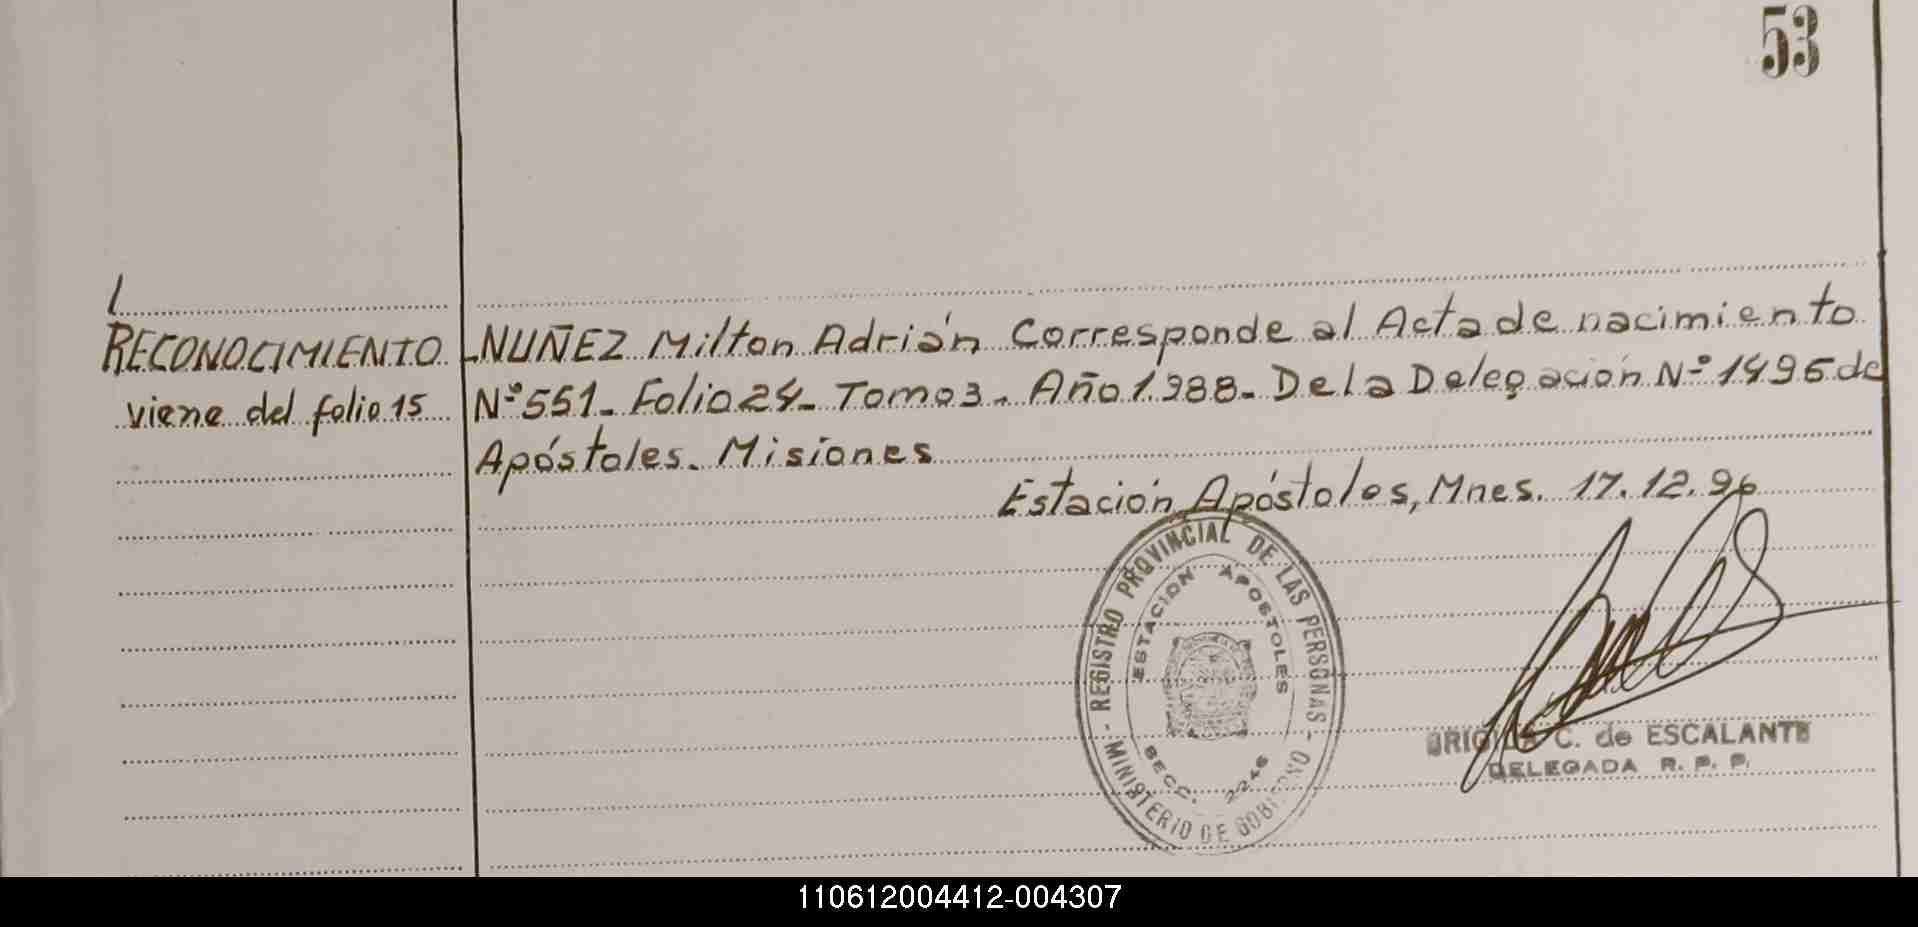 53
RECONOCIMIENTO
viene del folio 15
-NUÑEZ Milton Adrián Corresponde al Acta de nacimiento
Nº 551- Folio 24- Tomo 3- Año 1.988- De la Delegación Nº 1495 de
Apóstoles- Misiones
Estación Apóstoles, Mnes. 17.12.96
- REGISTRO PROVINCIAL DE LAS PERSONAS -
MINISTERIO DE GOBIERNO
ESTACION APOSTOLES
SECC. 2246
C. de ESCALANTE
DELEGADA R. P. P.
110612004412-004307